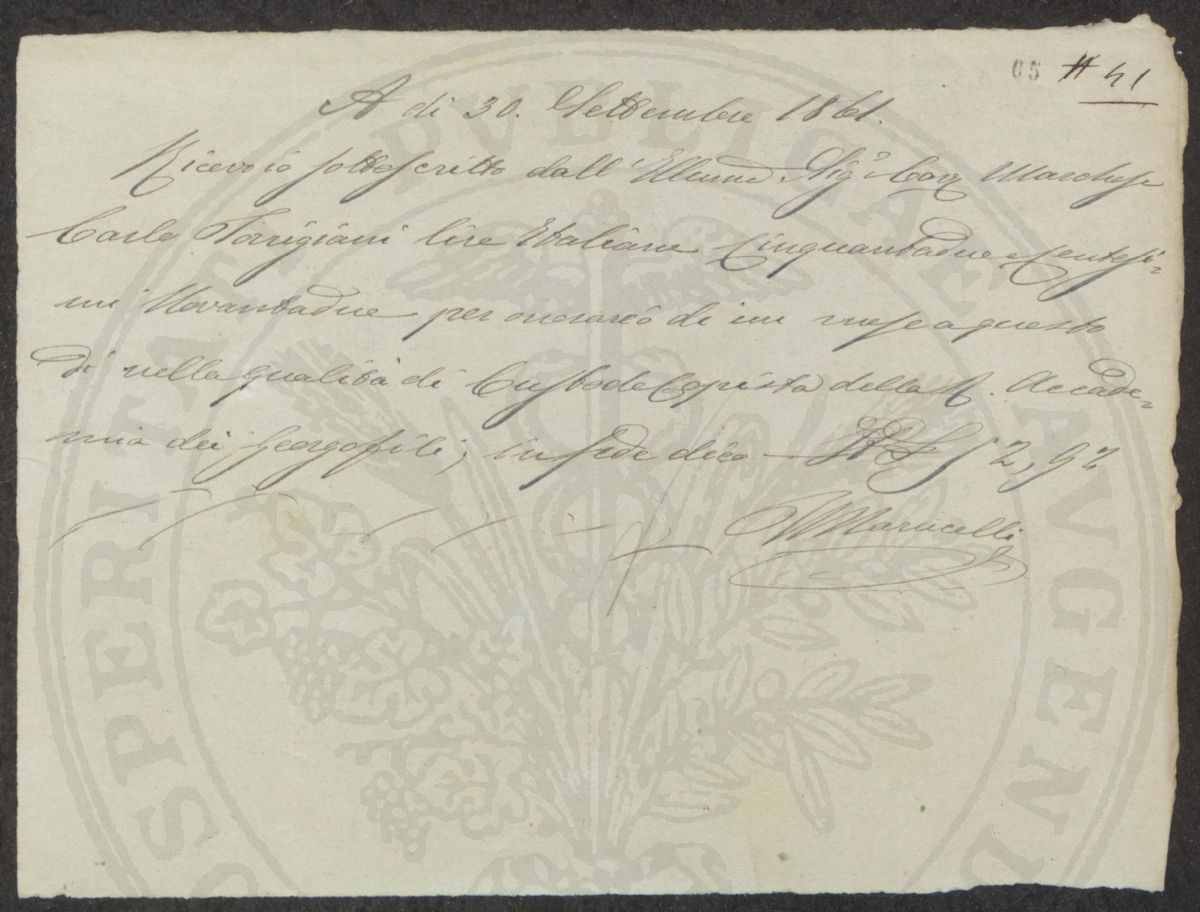 65 # 41
A di 30. Settembre 1861.
Ricevo io sottoscritto dall' Illmo Sigr Cav Marchese
Carlo Torrigiani lire Italiane Cinquantadue e Centesi=
mi Novantadue per onorario di un mese a questo
dì nella qualità di Custode Copista della R. Accade=
mia dei Georgofili; in fede dico — 52,92
Marucelli
PROSPERITATI PVBLICAE AVGENDAE